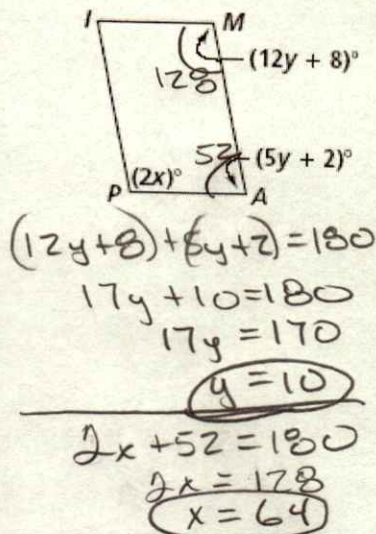 I M
(12y + 8)°
128
52 (5y + 2)°
(2x)°
P A
(12y+8)+(5y+2)=180
17y+10=180
17y=170
y=10
2x+52=180
2x=128
x=64